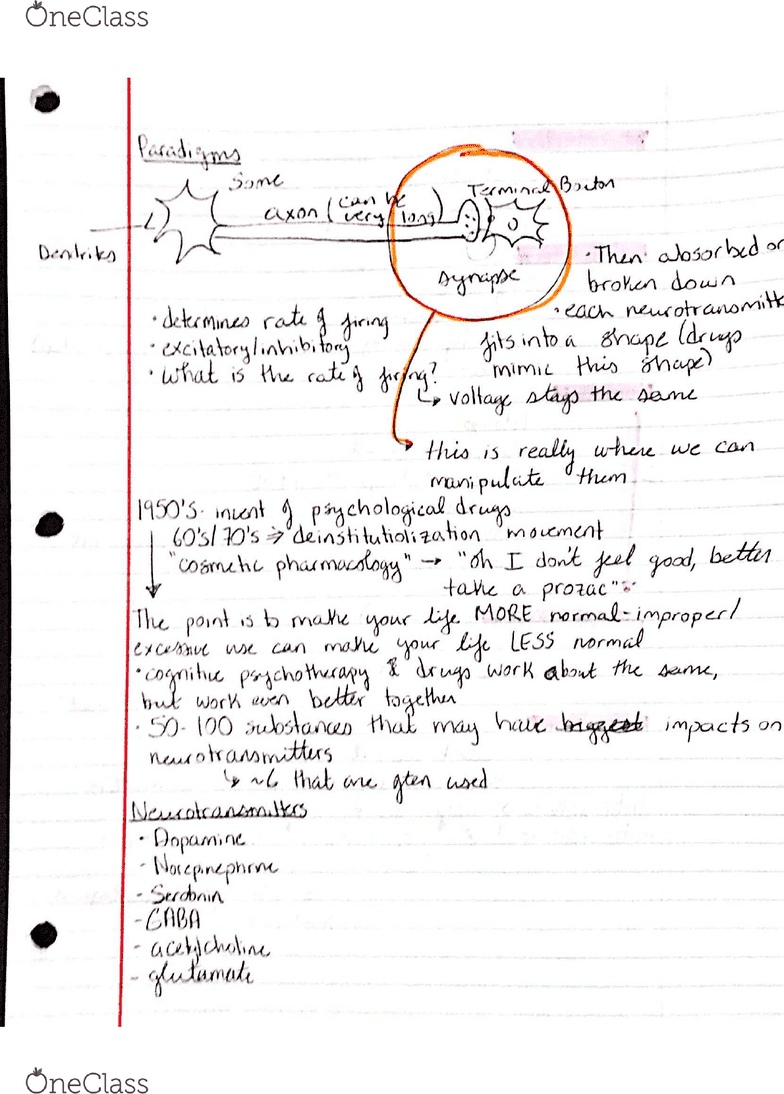 OneClass
Paradigms
Some
axon (can be very long)
Terminal Bouton
Dendrites
synapse
· Then absorbed or
broken down
· each neurotransmitte
fits into a shape (drugs
mimic this shape)
· determines rate of firing
· excitatory/inhibitory
· What is the rate of firing?
↳ voltage stays the same
this is really where we can
manipulate them
1950's. invent of psychological drugs
60's/70's ⇒ deinstitutiolization movement
"cosmetic pharmacology" → "oh I don't feel good, better
take a prozac"
The point is to make your life MORE normal-improper/
excessive use can make your life LESS normal
· cognitive psychotherapy & drugs work about the same,
but work even better together
· 50-100 substances that may have biggest impacts on
neurotransmitters
↳ ~6 that are often used
Neurotransmitters
· Dopamine
- Norepinephrine
- Serotonin
- GABA
- acetylcholine
- glutamate
OneClass